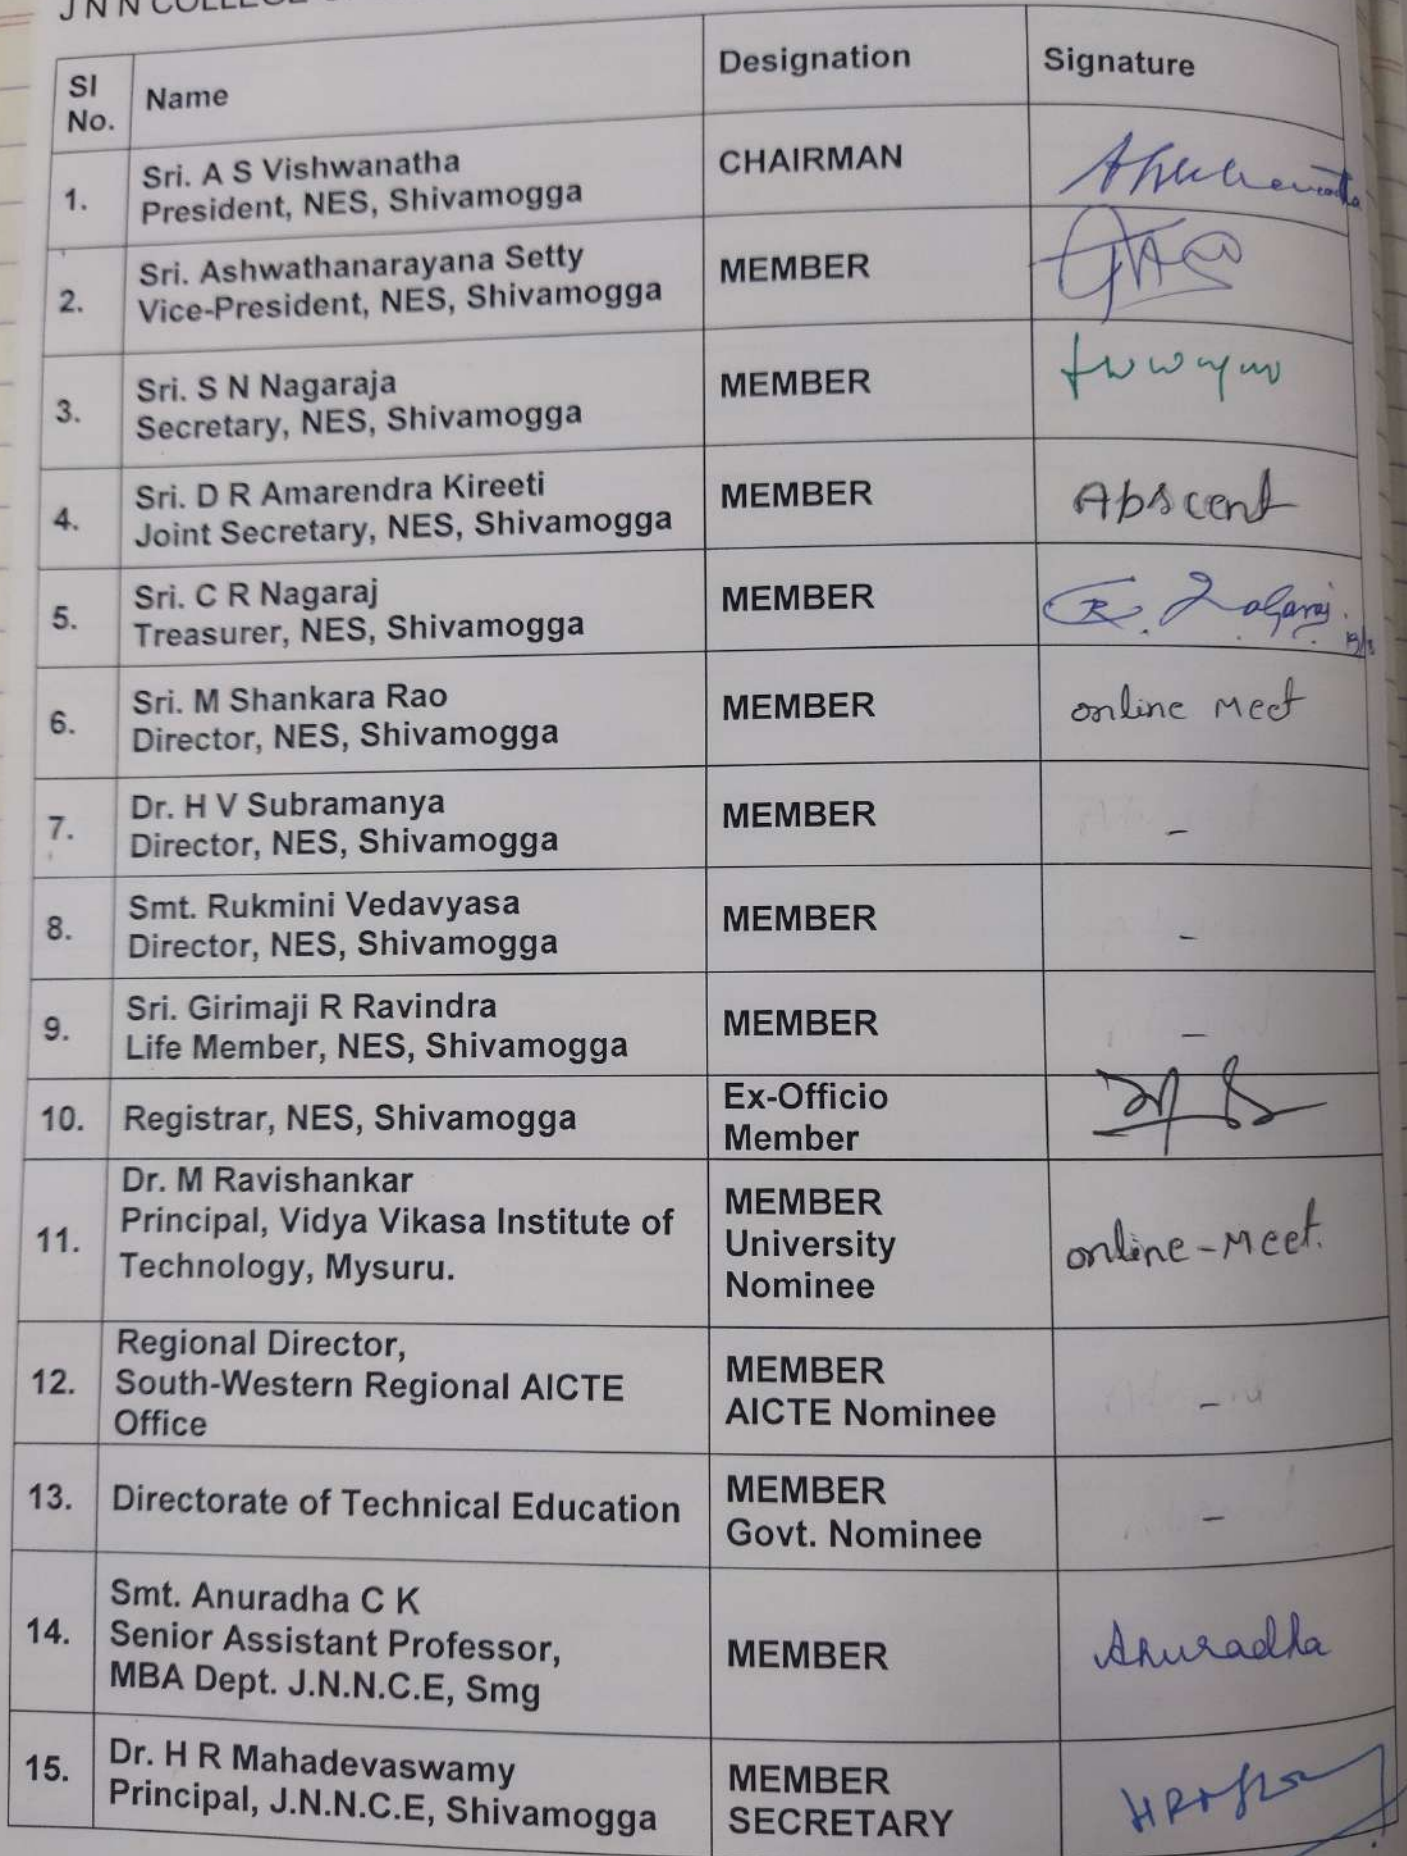 J N N COLLEGE
Sl No. Name Designation Signature
1. Sri. A S Vishwanatha
President, NES, Shivamogga
CHAIRMAN
2. Sri. Ashwathanarayana Setty
Vice-President, NES, Shivamogga
MEMBER
3. Sri. S N Nagaraja
Secretary, NES, Shivamogga
MEMBER
4. Sri. D R Amarendra Kireeti
Joint Secretary, NES, Shivamogga
MEMBER
Abscent
5. Sri. C R Nagaraj
Treasurer, NES, Shivamogga
MEMBER
6. Sri. M Shankara Rao
Director, NES, Shivamogga
MEMBER
online Meet
7. Dr. H V Subramanya
Director, NES, Shivamogga
MEMBER
-
8. Smt. Rukmini Vedavyasa
Director, NES, Shivamogga
MEMBER
-
9. Sri. Girimaji R Ravindra
Life Member, NES, Shivamogga
MEMBER
-
10. Registrar, NES, Shivamogga
Ex-Officio
Member
11. Dr. M Ravishankar
Principal, Vidya Vikasa Institute of
Technology, Mysuru.
MEMBER
University
Nominee
online-Meet.
12. Regional Director,
South-Western Regional AICTE
Office
MEMBER
AICTE Nominee
-
13. Directorate of Technical Education
MEMBER
Govt. Nominee
-
14. Smt. Anuradha C K
Senior Assistant Professor,
MBA Dept. J.N.N.C.E, Smg
MEMBER
Anuradha
15. Dr. H R Mahadevaswamy
Principal, J.N.N.C.E, Shivamogga
MEMBER
SECRETARY